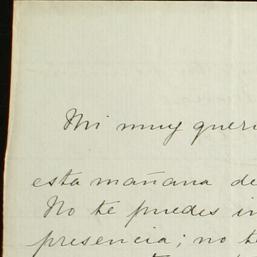 Mi muy queri
esta mañana de
No te puedes in
presencia; no te